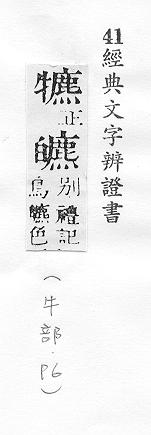 41經典文字辨證書
犥正
皫別禮記
鳥皫色
(牛部.P6)